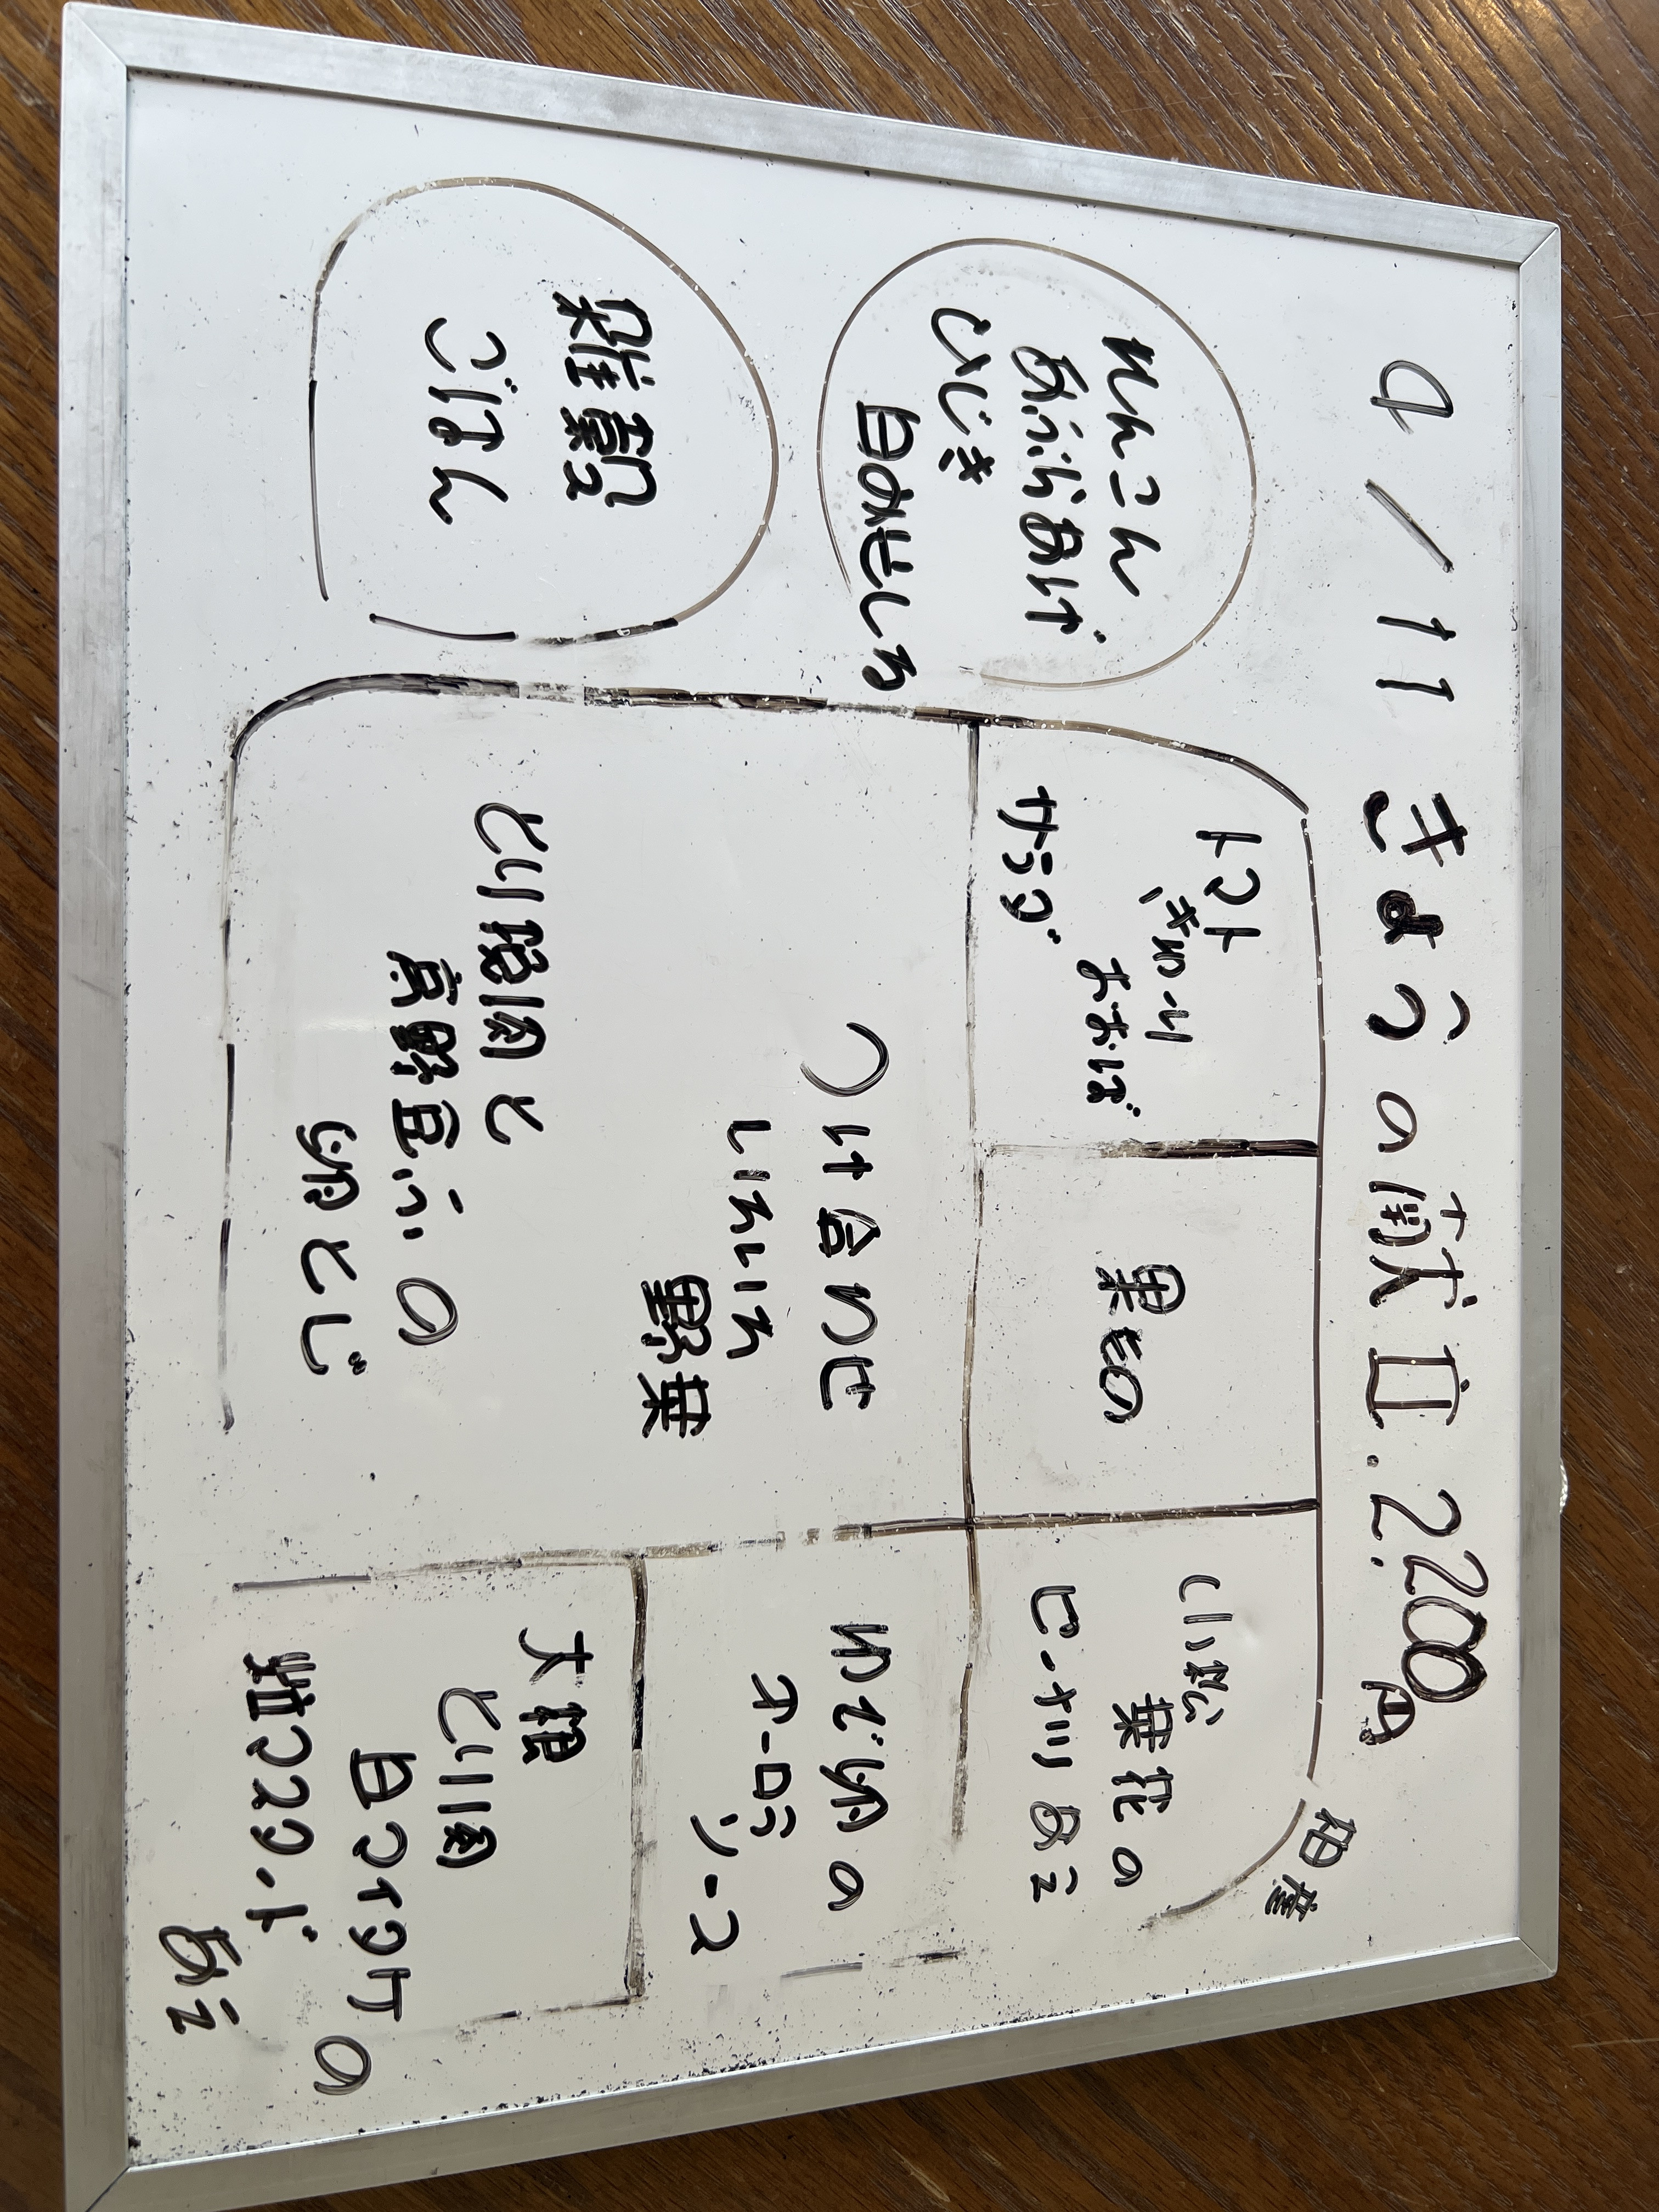 9/11 きょうの献立. 2.200円
トマト
きゅうり
おおば
サラダ
果もの
小松
菜花の
ピーナツあえ
れんこん
あぶらあげ
ひじき
白みそしる
つけ合わせ
いろいろ
野菜
ゆで卵の
オーロラ
ソース
雑穀
ごはん
とり挽肉と
高野豆ふの
卵とじ
大根
とり肉
白マイタケの
粒マスタード
あえ